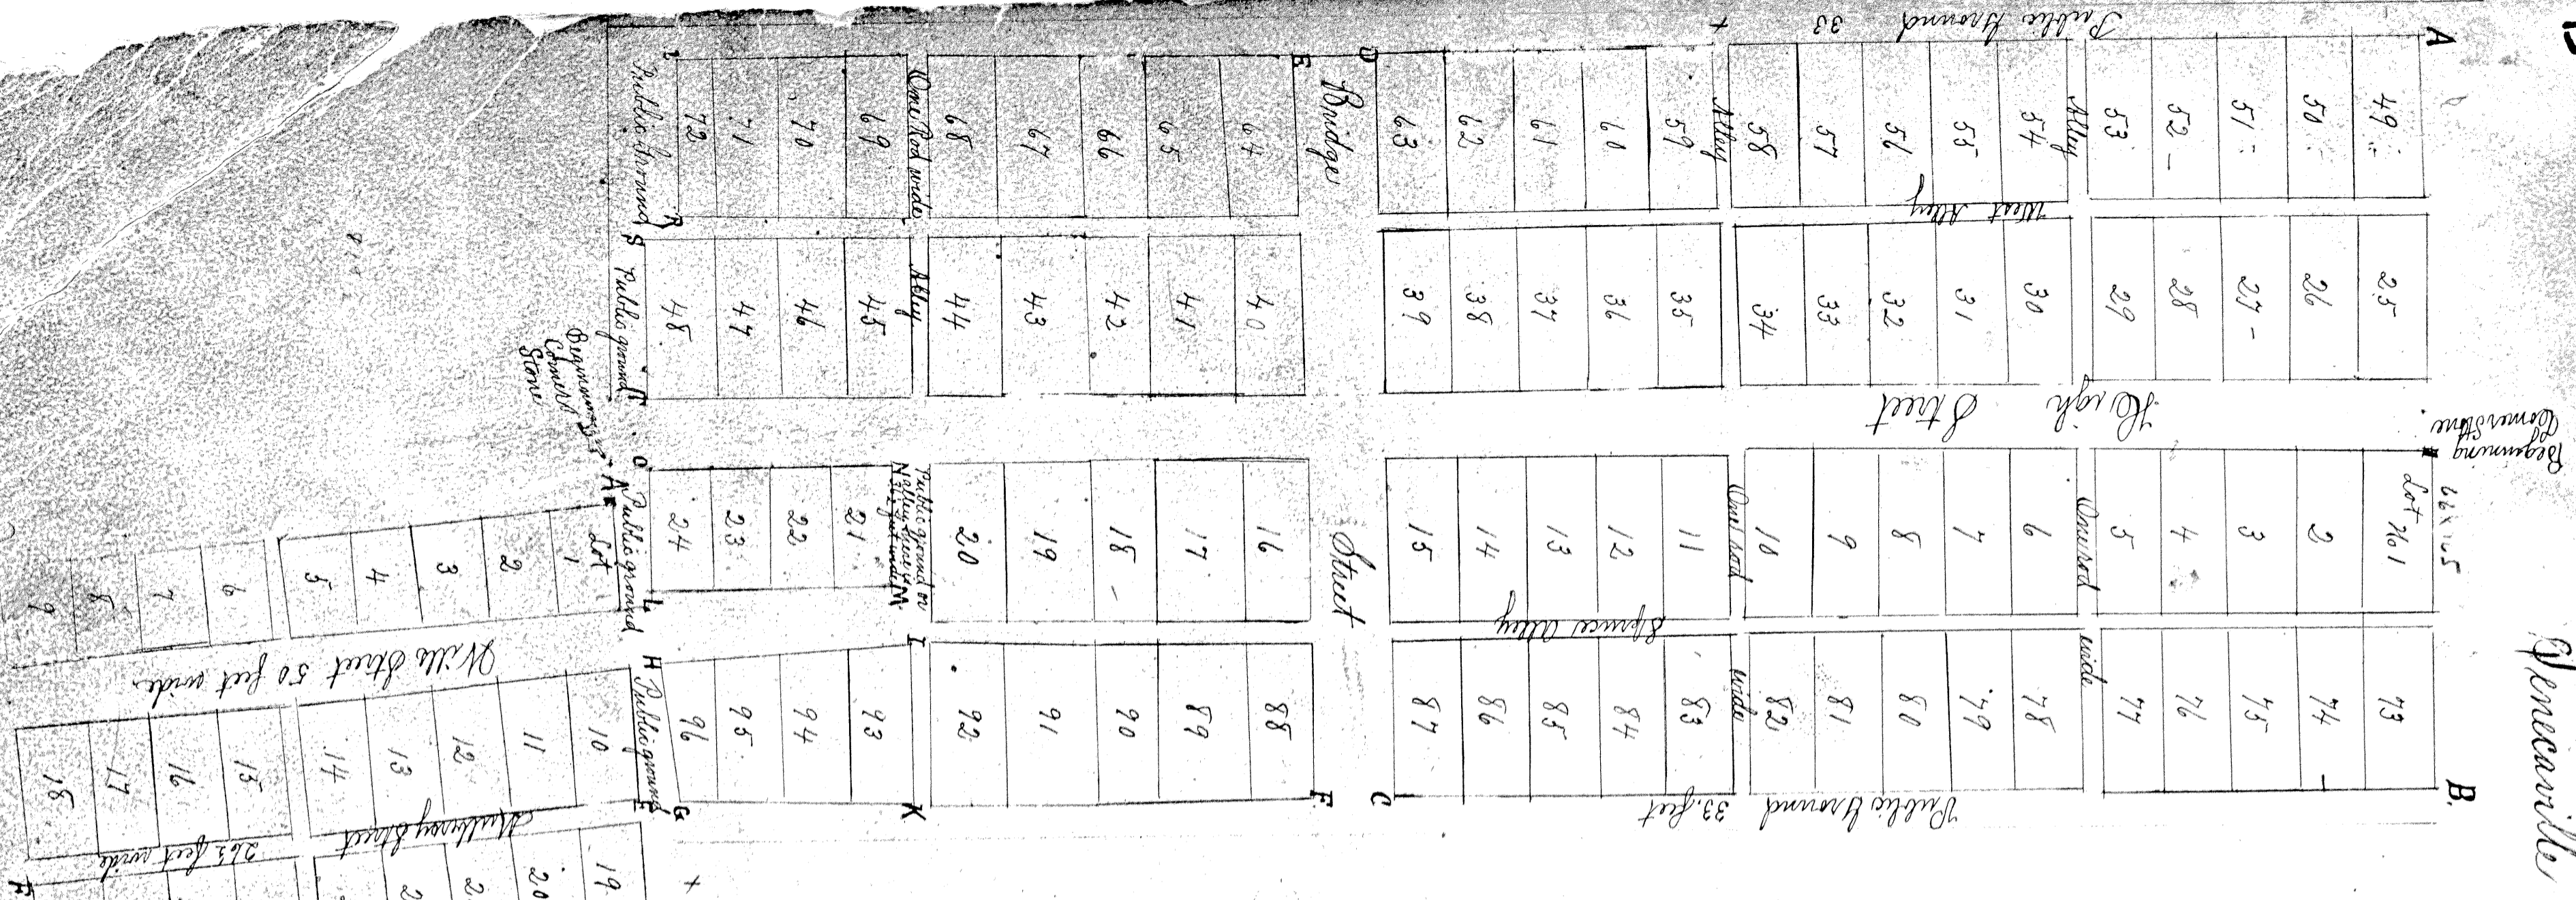 Senecaville
A
B.
Public Ground 33
+
49
50
51
52
53
Alley
54
55
56
57
58
Alley
59
60
61
62
63
D
Bridge
E
64
65
66
67
68
One Rod wide
69
70
71
72
Public Ground
R
S
West Alley
25
26
27
28
29
30
31
32
33
34
35
36
37
38
39
40
41
42
43
44
Alley
45
46
47
48
Public ground
T
High Street
Beginning
Corner Stone
66 x 165
Lot No 1
2
3
4
5
One rod
6
7
8
9
10
One rod
11
12
13
14
15
Street
16
17
18
19
20
Public ground or
N
M
21
22
23
24
O
L
Public ground
Spruce Alley
73
74
75
76
77
wide
78
79
80
81
82
wide
83
84
85
86
87
C
F
88
89
90
91
92
I
K
93
94
95
96
H
G
Public ground
E
Public Ground 33 feet
Beginning
Corner
Stone
A
Lot
1
2
3
4
5
6
7
8
9
Wills Street 50 feet wide
10
11
12
13
14
15
16
17
18
Mulberry Street
26½ feet wide
19
20
2
2
F
+